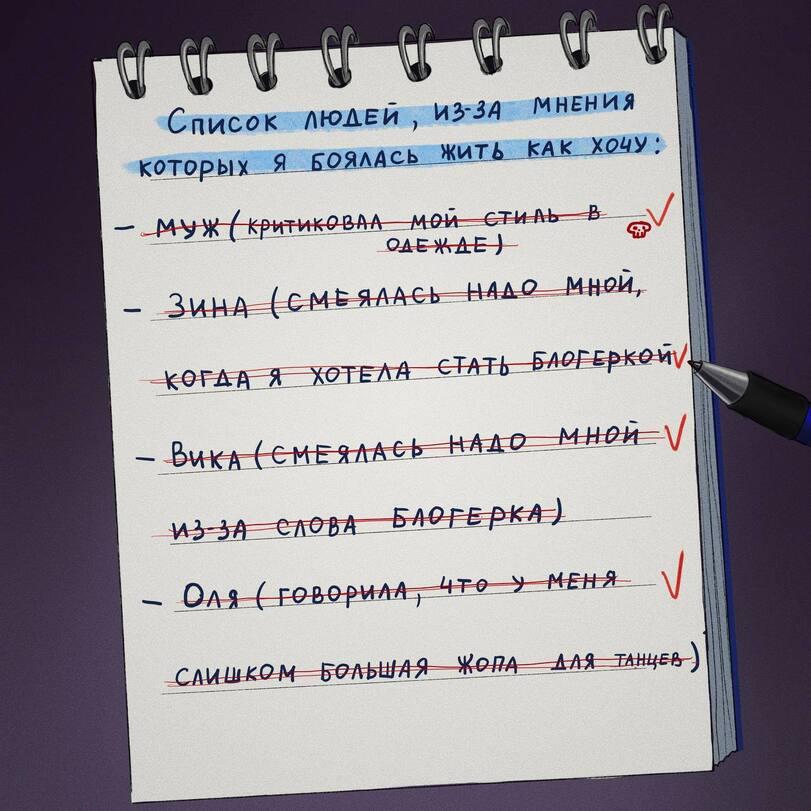 Список людей, из-за мнения
которых я боялась жить как хочу:
- муж (критиковал мой стиль в
одежде)
- Зина (смеялась надо мной,
когда я хотела стать блогеркой
- Вика (смеялась надо мной
из-за слова блогерка)
- Оля (говорила, что у меня
слишком большая жопа для танцев)